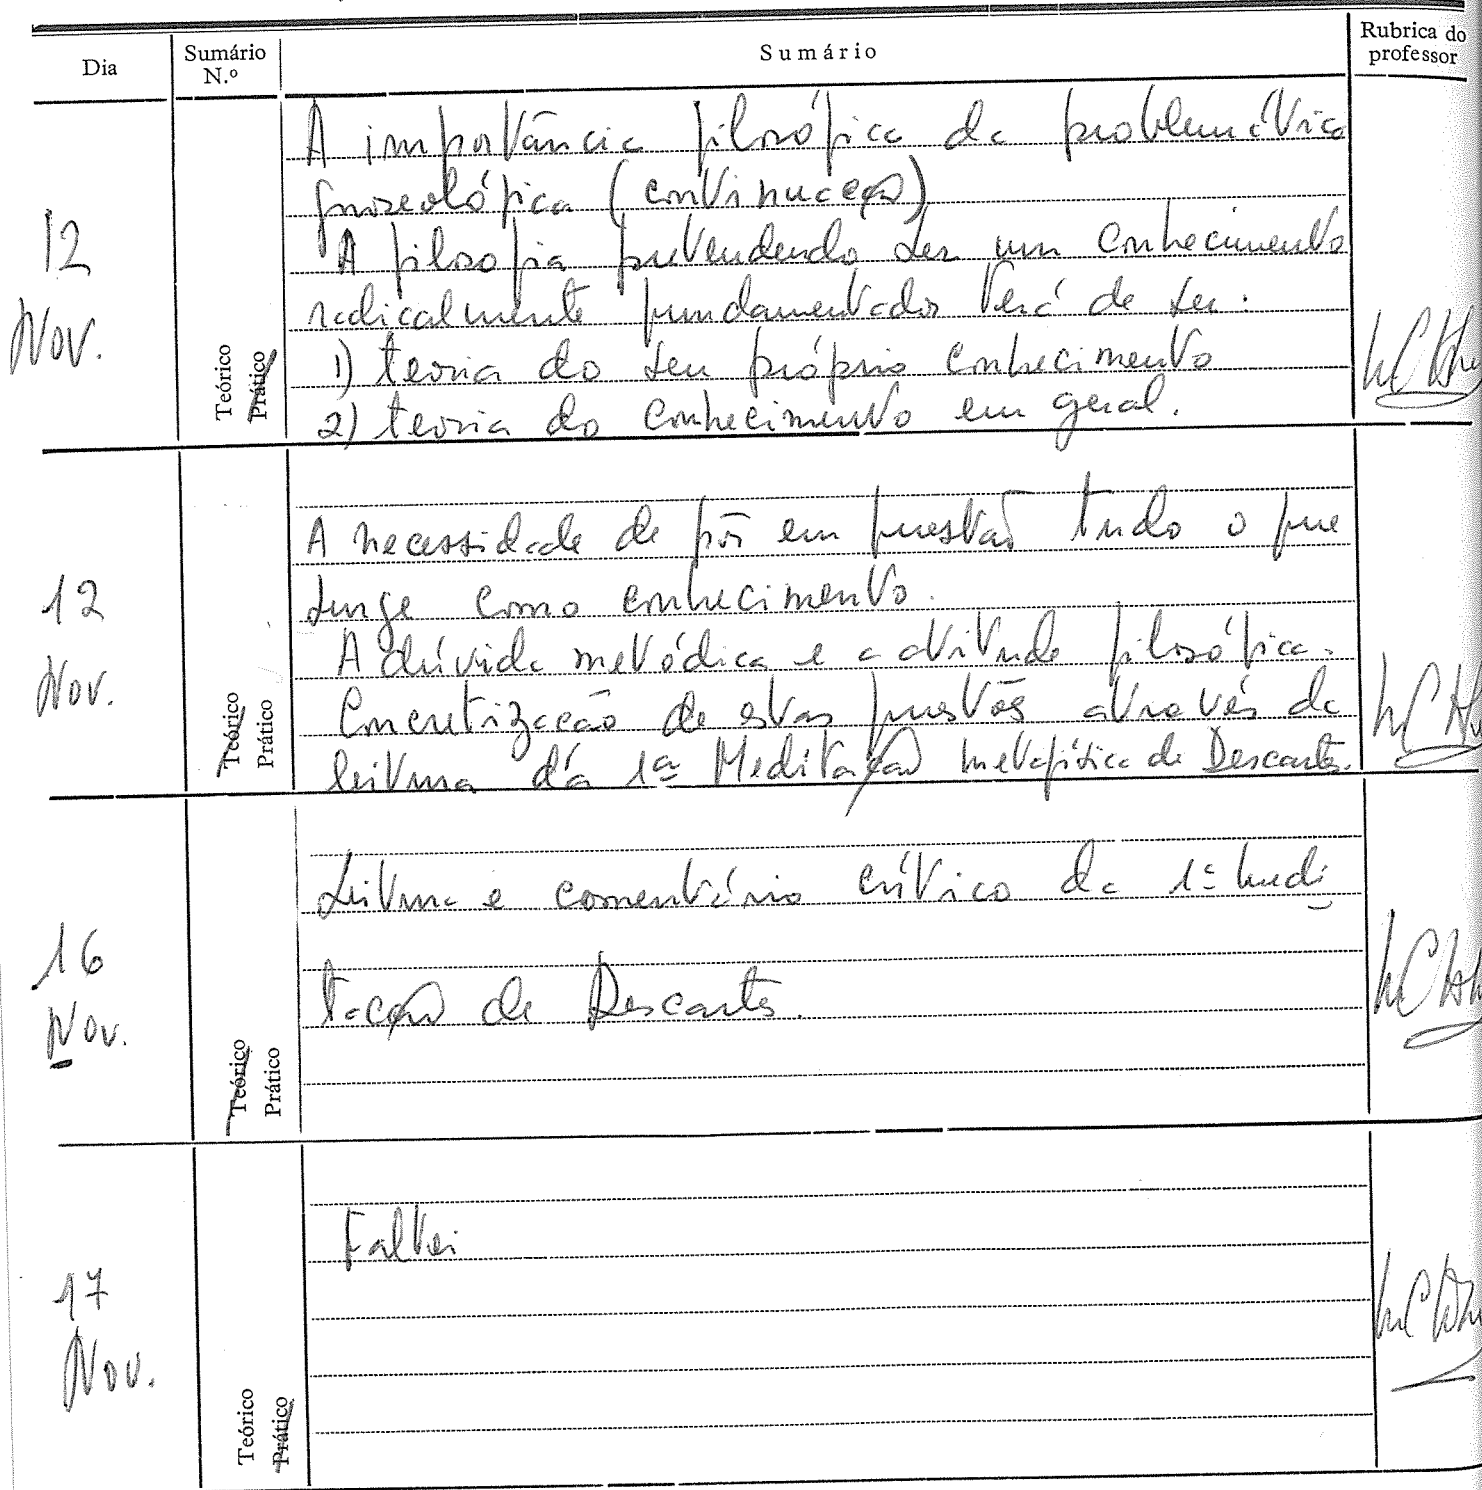 Dia
Sumário N.º
Sumário
Rubrica do professor
12 Nov.
Teórico
Prático
A importância filosófica da problemática
gnoseológica (continuação)
A filosofia pretendendo ser um conhecimento
radicalmente fundamentado terá de ser:
1) teoria do seu próprio conhecimento
2) teoria do conhecimento em geral.
12 Nov.
Teórico
Prático
A necessidade de pôr em questão tudo o que
surge como conhecimento.
A dúvida metódica e a atitude filosófica.
Concretização de estas questões através da
leitura da 1ª Meditação metafísica de Descartes.
16 Nov.
Teórico
Prático
Leitura e comentário crítico da 1ª medi
tação de Descartes.
17 Nov.
Teórico
Prático
Faltei